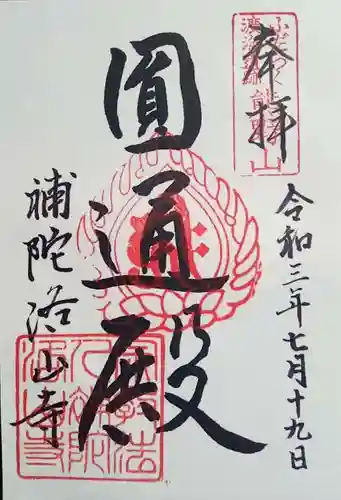 奉拝
令和三年七月十九日
圓通殿
補陀洛山寺